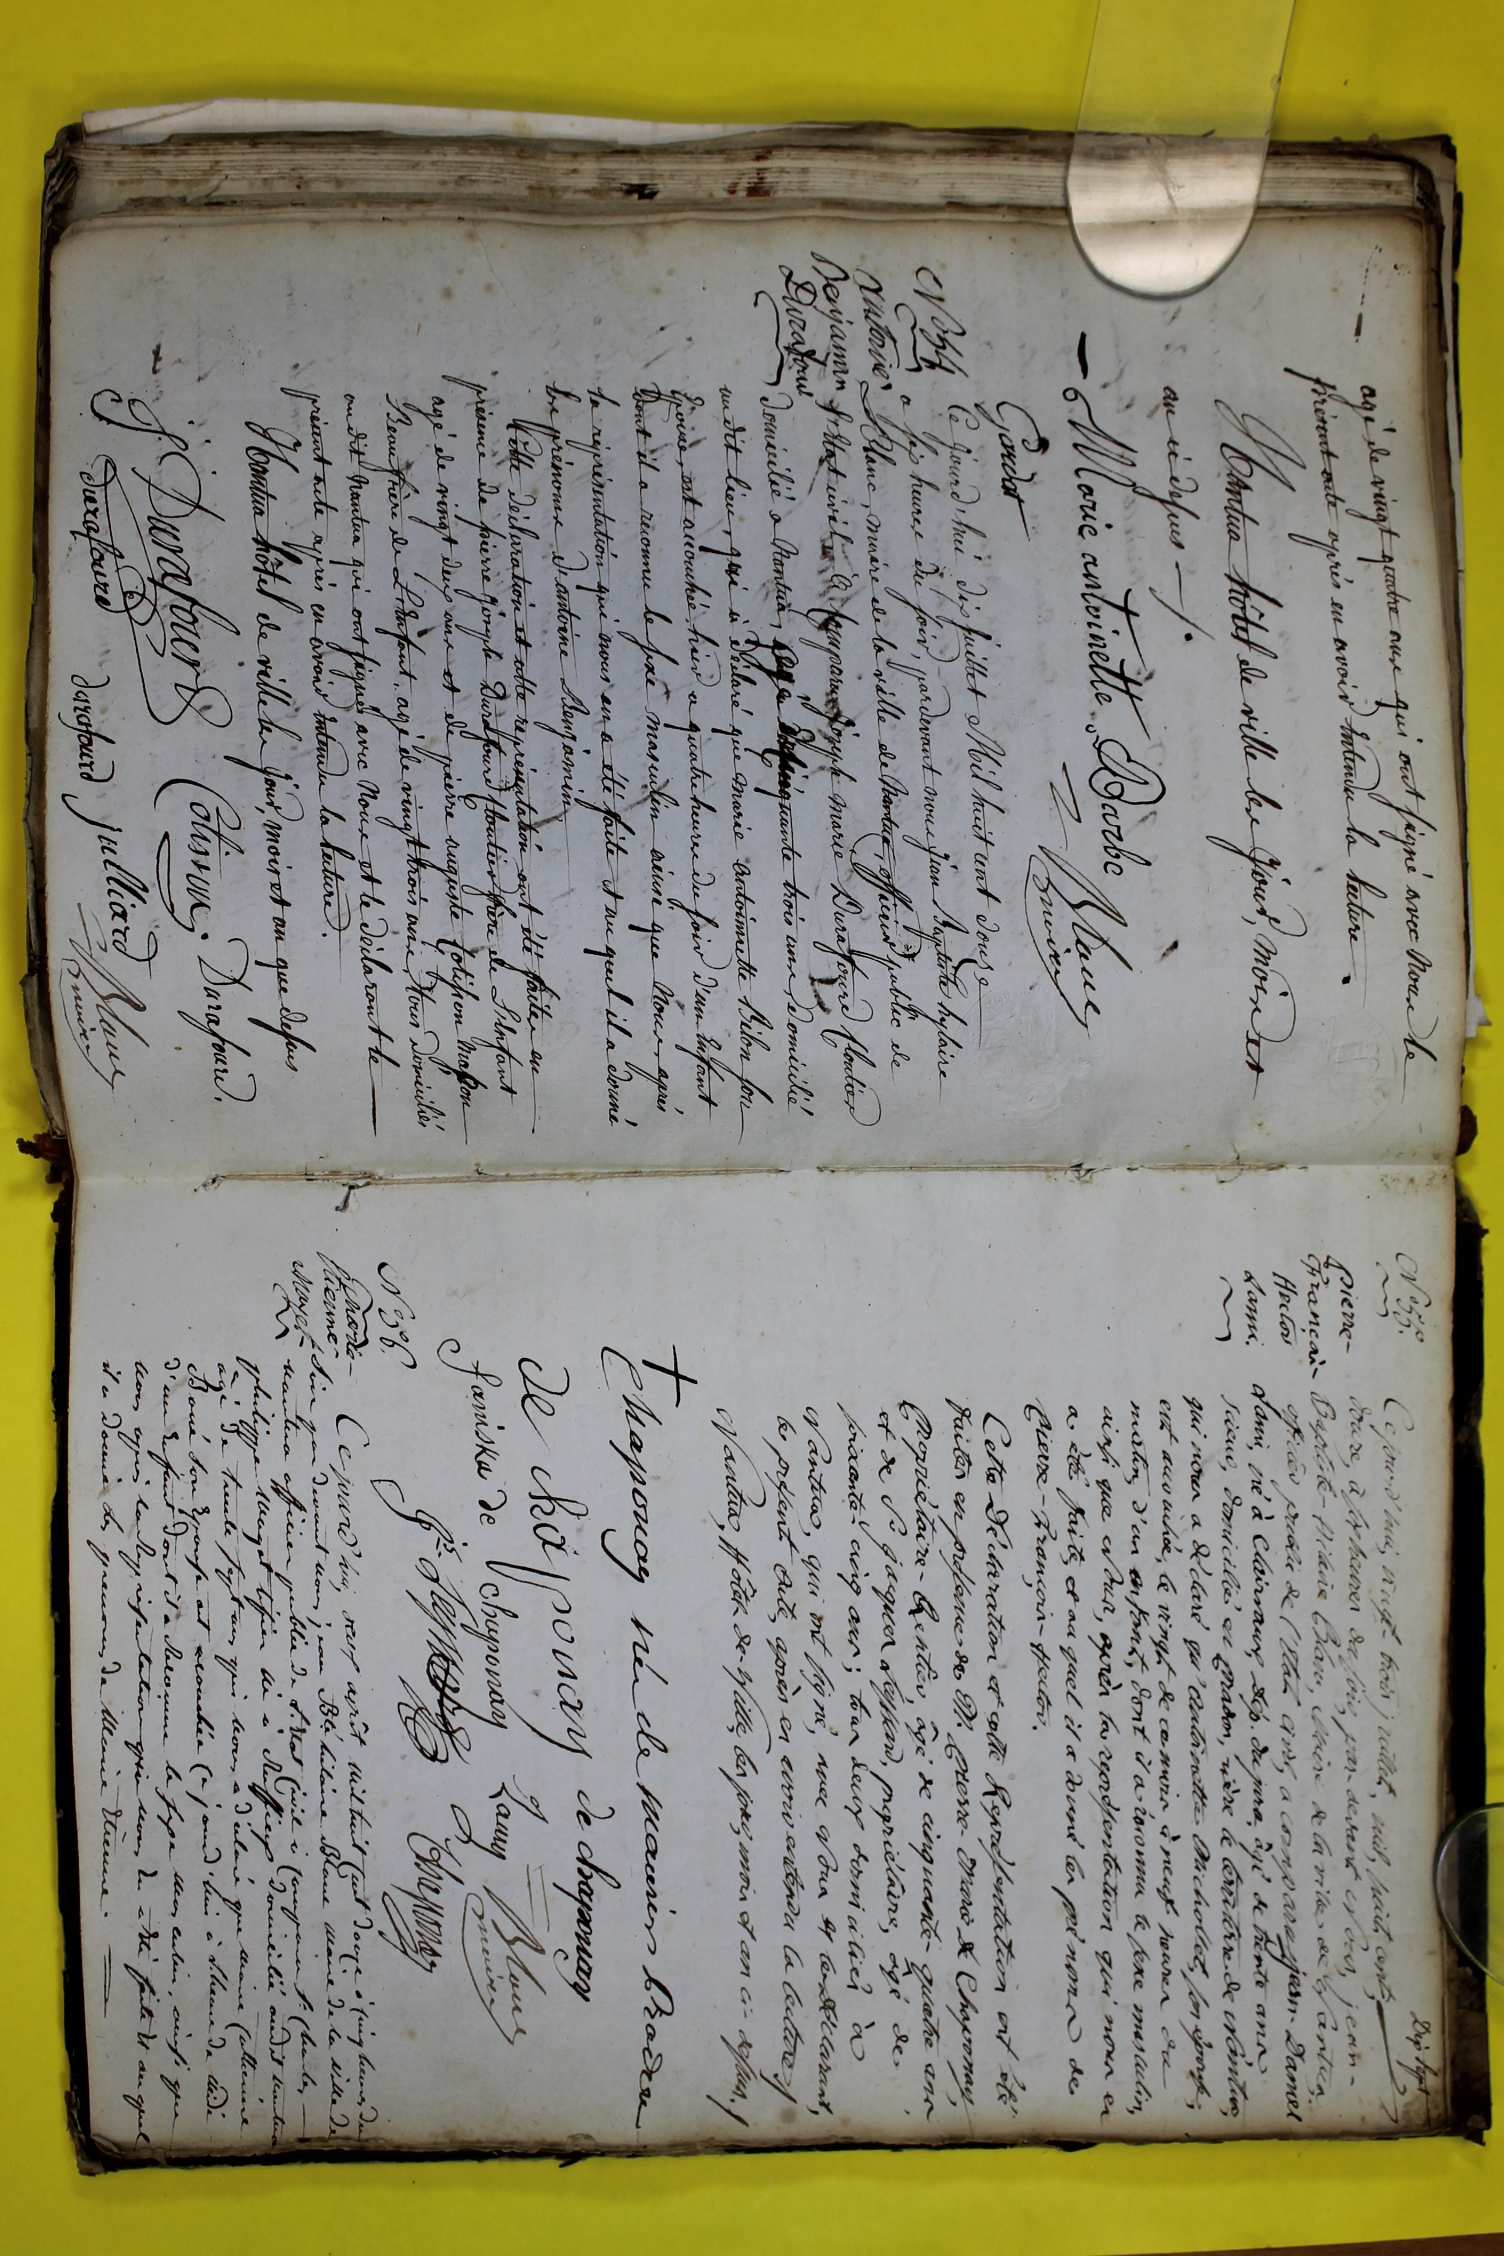 agé de vingt quatre ans qui ont signé avec Nous le
présent acte après en avoir Entendu la lecture.
Nantua hôtel de ville les jour, mois et
an ci dessus —/.
Marie antoinette Barbe
Goudet
Blanc
maire
N° 54
Antoine
Benjamin
Durafour
Ce jourd'hui dix juillet Mil huit cent douze
a six heures du soir, pardevant nous jean Baptiste hylaire
Blanc, maire de la ville de Nantua, officier public de
l'Etat civil a Comparu joseph marie Durafourd Cloutier
domicilié a Nantua, agé de cinquante trois ans domicilié
audit lieu, qui a déclaré que Marie antoinette Bilon son
Epouse, est accouchée, hier a quatre heures du soir d'un Enfant
Dont il a reconnu le sexe masculin ainsi que Nous, après
la représentation qui nous en a été faite et au quel il a donné
les prénoms d'antoine Benjamin
Cette déclaration et cette représentation ont été faites en
présence de pierre joseph Durafourd Cloutier frère de l'Enfant
agé de vingt deux ans et de pierre auguste Cotisson Maçon
Beau frère de L'Enfant, agé de vingt trois ans, tous domiciliés
audit Nantua qui ont signés avec Nous et le déclarant le
présent acte après en avoir Entendu la lecture.
Nantua hôtel de ville les jour, mois et an que dessus
J. Durafourd Cotisson. Durafourd.
durafourd durafourd julliard Blanc
maire
N° 55.
Pierre-
François
Hector
Lami.
Ce jourd'hui, vingt trois juillet, mil huit cent
douze, à six heures du soir, par devant Nous, jean-
Baptiste-Hilaire Blanc, Maire de la ville de Nantua,
officier public de l'Etat civil, a comparu jean-Daniel
Lami, né à Clairvaux, dép. du jura, âgé de trente ans
domicilié et Pradon, rière le territoire de Nantua,
qui nous a déclaré qu'antoinette Micholet, son épouse,
est accouchée, le vingt de ce mois à neuf heures du
matin, d'un enfant, dont il a reconnu le sexe masculin,
ainsi que Nous, après la représentation qui nous en
a été faite, et au quel il a donné les prénoms de
Pierre-François-Hector.
Cette Déclaration et cette Représentation ont été
faites en présence de M. Pierre Marie de Chaponay,
Propriétaire-Rentier âgé de cinquante-quatre ans
et de Sr jaques propriétaire, agé de
soixante-cinq ans; tous deux domiciliés à
Nantua, qui ont signé, avec Nous et le déclarant,
le présent acte, après en avoir entendu la lecture./
Nantua, Hôtel-de-Ville, les jour, mois et an ci-dessus./
Chaponay né de Mauvis
de chaponay de chaponay
de chaponay Lamy Blanc
maire
Chaponay
N° 56.
Etienne
Mayet
Ce jourd'hui, neuf août mil huit cent douze à cinq heures du
soir par devant nous, jean Bte hilaire Blanc maire de la ville de
nantua officier public de l'Etat Civil a comparu Sr Charles
philippe Mayet domicilié audit nantua
agé de trente sept ans qui nous a déclaré que
son Epouse est accouchée ce jourd'hui à l'heure de midi
d'un Enfant dont il a reconnu le sexe masculin, ainsi que
nous, après la représentation qui nous en a été faite et au quel
il a donné les prénoms de Etienne.